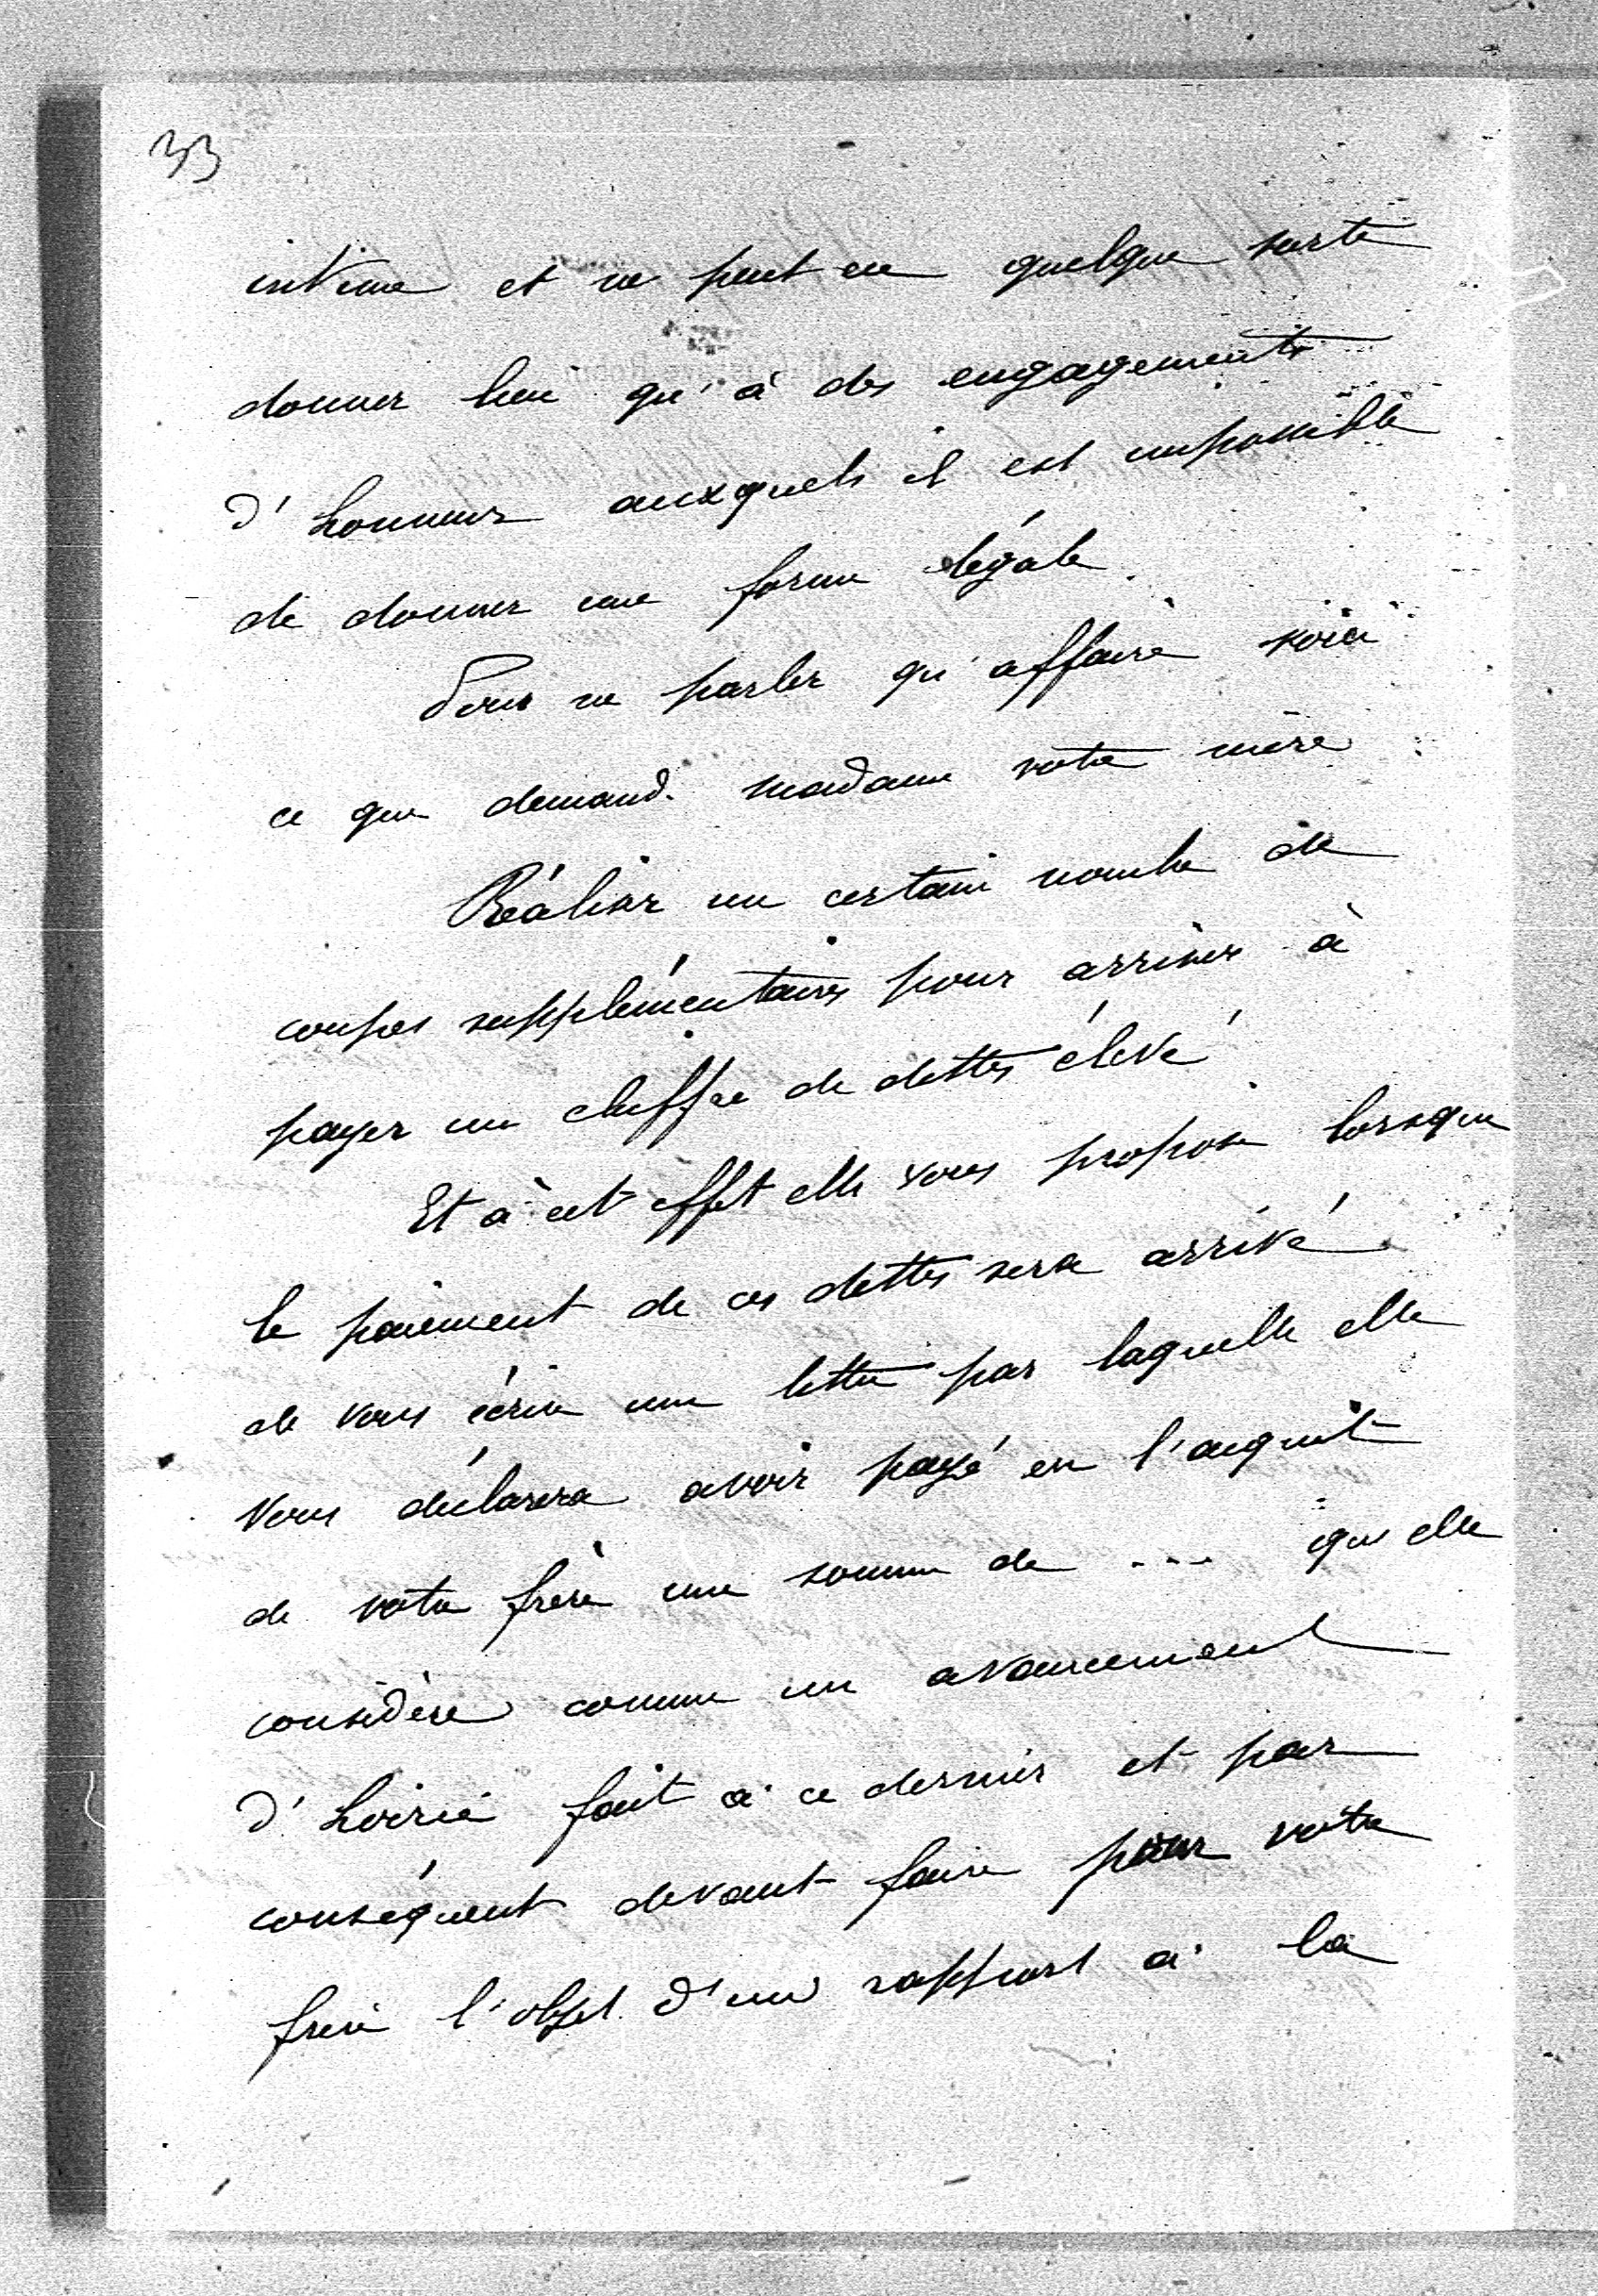 33
intime et ne peut en quelque sorte
donner lieu qu'à des engagements
d'honneur auxquels il est impossible
de donner une forme légale
Pour ne parler qu'affaire voici
ce que demand. madame votre mère
Réaliser un certain nombre de
coupes supplémentaires pour arriver à
payer un chiffre de dettes élevé
Et à cet effet elle vous propose lorsque
le paiement de ces dettes sera arrivé
de vous écrire une lettre par laquelle elle
vous déclarera avoir payé en l'acquit
de votre frère une somme de ... que elle
considère comme un avancement
d'hoirie fait à ce dernier et par
conséquent devant faire pour votre
frère l'objet d'un rapport à la